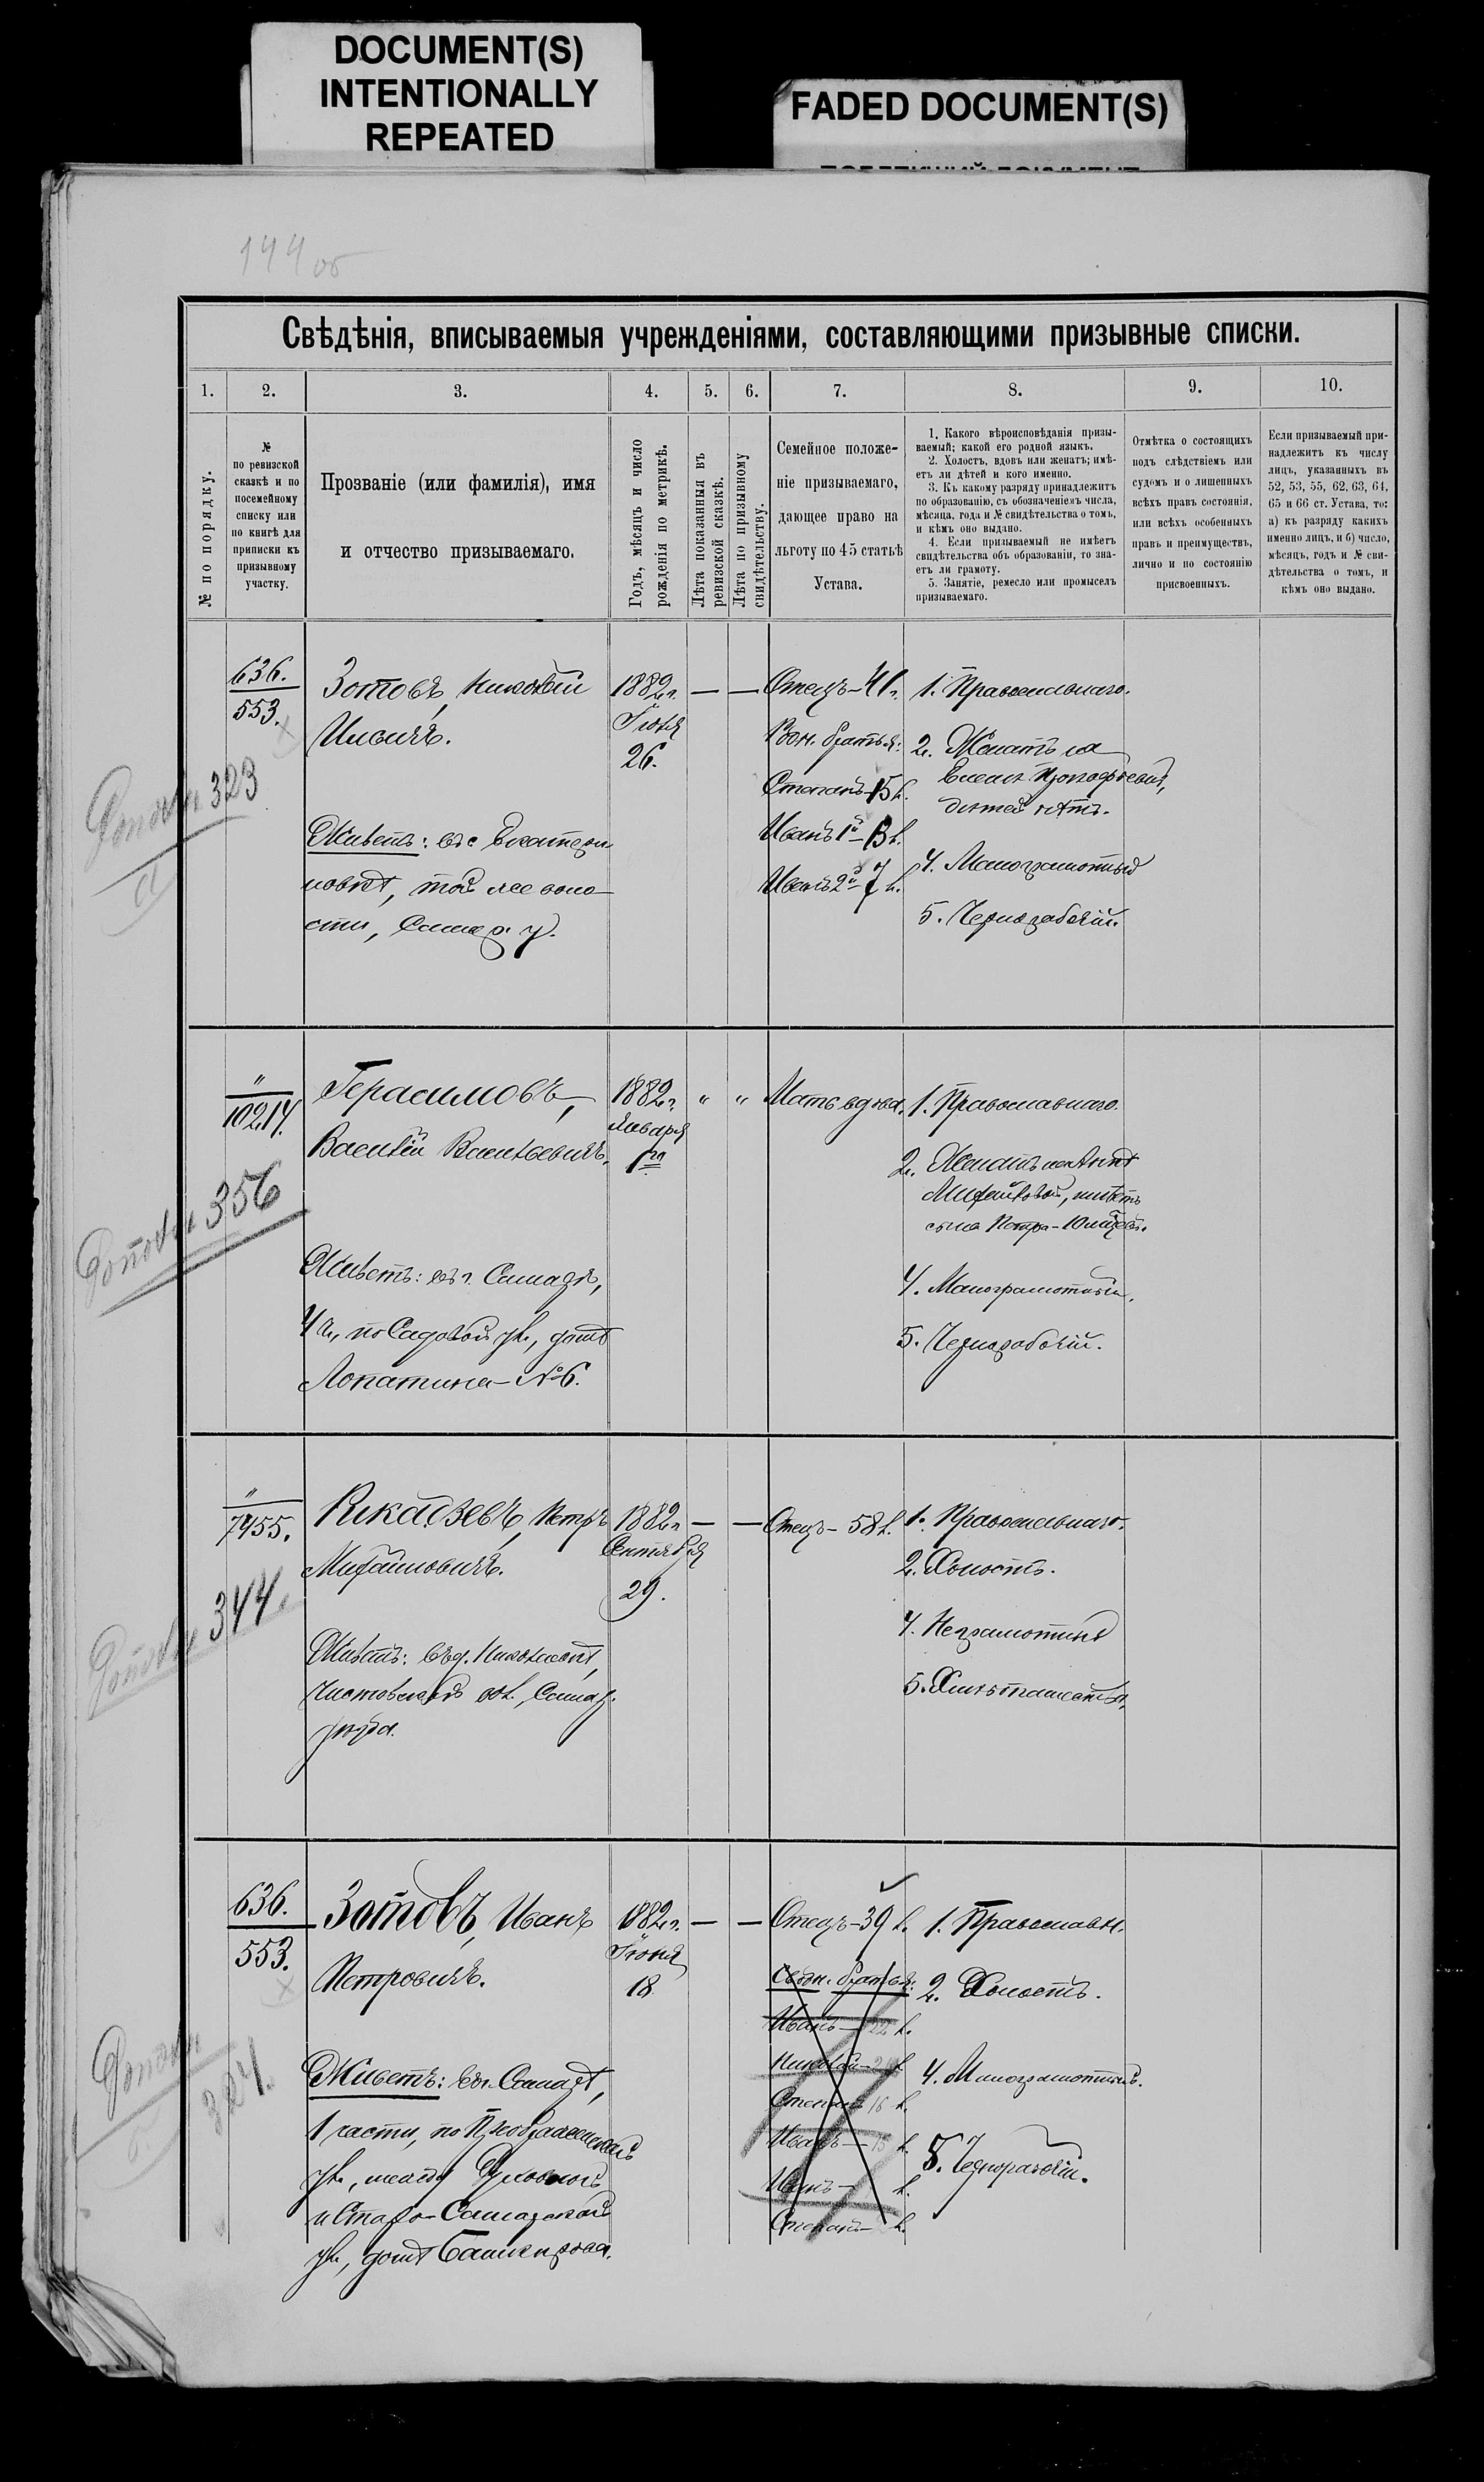 DOCUMENT(S)
INTENTIONALLY
REPEATED
FADED DOCUMENT(S)
144 об
Свѣдѣнія, вписываемыя учрежденіями, составляющими призывные списки.
1. 2. 3. 4. 5. 6. 7. 8. 9. 10.
№ по порядку.
№
по ревизской
сказкѣ и по
посемейному
списку или
по книгѣ для
приписки къ
призывному
участку.
Прозваніе (или фамилія), имя
и отчество призываемаго.
Годъ, мѣсяцъ и число
рожденія по метрикѣ.
Лѣта показанныя въ
ревизской сказкѣ.
Лѣта по призывному
свидѣтельству.
Семейное положе-
ніе призываемаго,
дающее право на
льготу по 45 статьѣ
Устава.
1. Какого вѣроисповѣданія призы-
ваемый; какой его родной языкъ.
2. Холостъ, вдовъ или женатъ; имѣ-
етъ ли дѣтей и кого именно.
3. Къ какому разряду принадлежитъ
по образованію, съ обозначеніемъ числа,
мѣсяца, года и № свидѣтельства о томъ,
и кѣмъ оно выдано.
4. Если призываемый не имѣетъ
свидѣтельства объ образованіи, то зна-
етъ ли грамоту.
5. Занятіе, ремесло или промыселъ
призываемаго.
Отмѣтка о состоящихъ
подъ слѣдствіемъ или
судомъ и о лишенныхъ
всѣхъ правъ состоянія,
или всѣхъ особенныхъ
правъ и преимуществъ,
лично и по состоянію
присвоенныхъ.
Если призываемый при-
надлежитъ къ числу
лицъ, указанныхъ въ
52, 53, 55, 62, 63, 64,
65 и 66 ст. Устава, то:
а) къ разряду какихъ
именно лицъ, и б) число,
мѣсяцъ, годъ и № сви-
дѣтельства о томъ, и
кѣмъ оно выдано.
636.
553.
323
Зотовъ, Николай
Живетъ: въ с. Екатери
новкѣ, той же воло
сти, Самар. у.
1882 г.
26.
— —
Отецъ – 41 г.
Родн. братья:
Степанъ – 15 л.
Иванъ 1й – 13 л.
Иванъ 2й – 7 л.
1. Православнаго.
2. Женатъ на
Еленѣ Прокофьевой,
дѣтей нѣтъ.
4. Малограмотный
5. Чернорабочій.
"
10214.
356
Герасимовъ,
Василій Васильевичъ.
Живетъ: въ г. Самарѣ,
4 ч., по Садовой ул., домъ
Лопатина – № 6.
1882 г.
Января
1го
" "
Мать вдова.
1. Православнаго.
2. Женатъ на Аннѣ
Михайловой, имѣетъ
сына Петра – 10 мѣсяц.
4. Малограмотный.
5. Чернорабочій.
"
7455.
344.
Петръ
Михайловичъ.
Живетъ: въ д. Николаевкѣ,
вол., Самар.
уѣзда.
1882 г.
Сентября
29.
— —
Отецъ – 58 л.
1. Православнаго.
2. Холостъ.
4. Неграмотный
5. Хлѣбопашество.
636.
553.
324.
Зотовъ, Иванъ
Петровичъ.
Живетъ: въ г. Самарѣ,
1 части, по Преображенской
ул., между
и Старо-Самарской
ул., домъ Башкирова.
1882 г.
Іюня
18
— —
Отецъ – 39 л.
Сводн. братья:
Иванъ – 22 л.
Николай – 21 л.
Степанъ 16 л.
Иванъ – 13 л.
Иванъ – л.
Степанъ – л.
1. Православн.
2. Холостъ.
4. Малограмотный.
5. Чернорабочій.